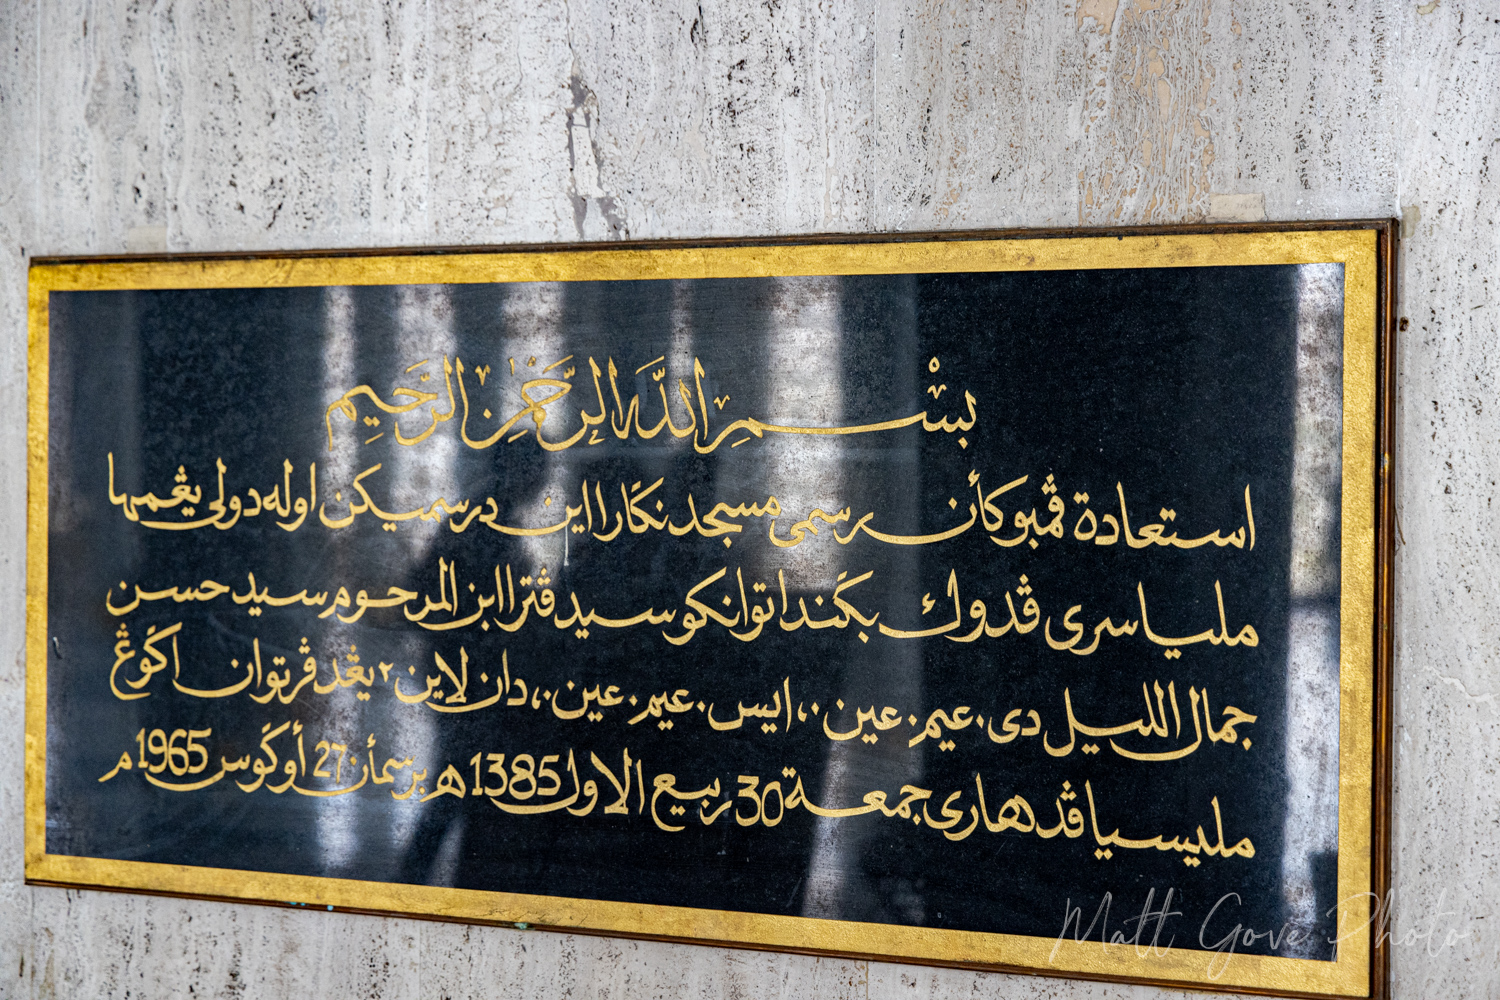 بِسْمِ اللَّهِ الرَّحْمٰنِ الرَّحِيمِ
استعادة ڤمبوكأن رسمى مسجد نݢارا اين درسميكن اوله دولى يڠمها
مليا سرى ڤدوك بݢندا توانكو سيد ڤترا ابن المرحوم سيد حسن
جمال الليل دى.عيم.عين.،، ايس.عيم.عين.،، دان لاين٢ يڠدڤرتوان اݢوڠ
مليسيا ڤدهارى جمعة 30 ربيع الاول 1385ه برسمأن 27 أوݢوس 1965م
Matt Gove Photo